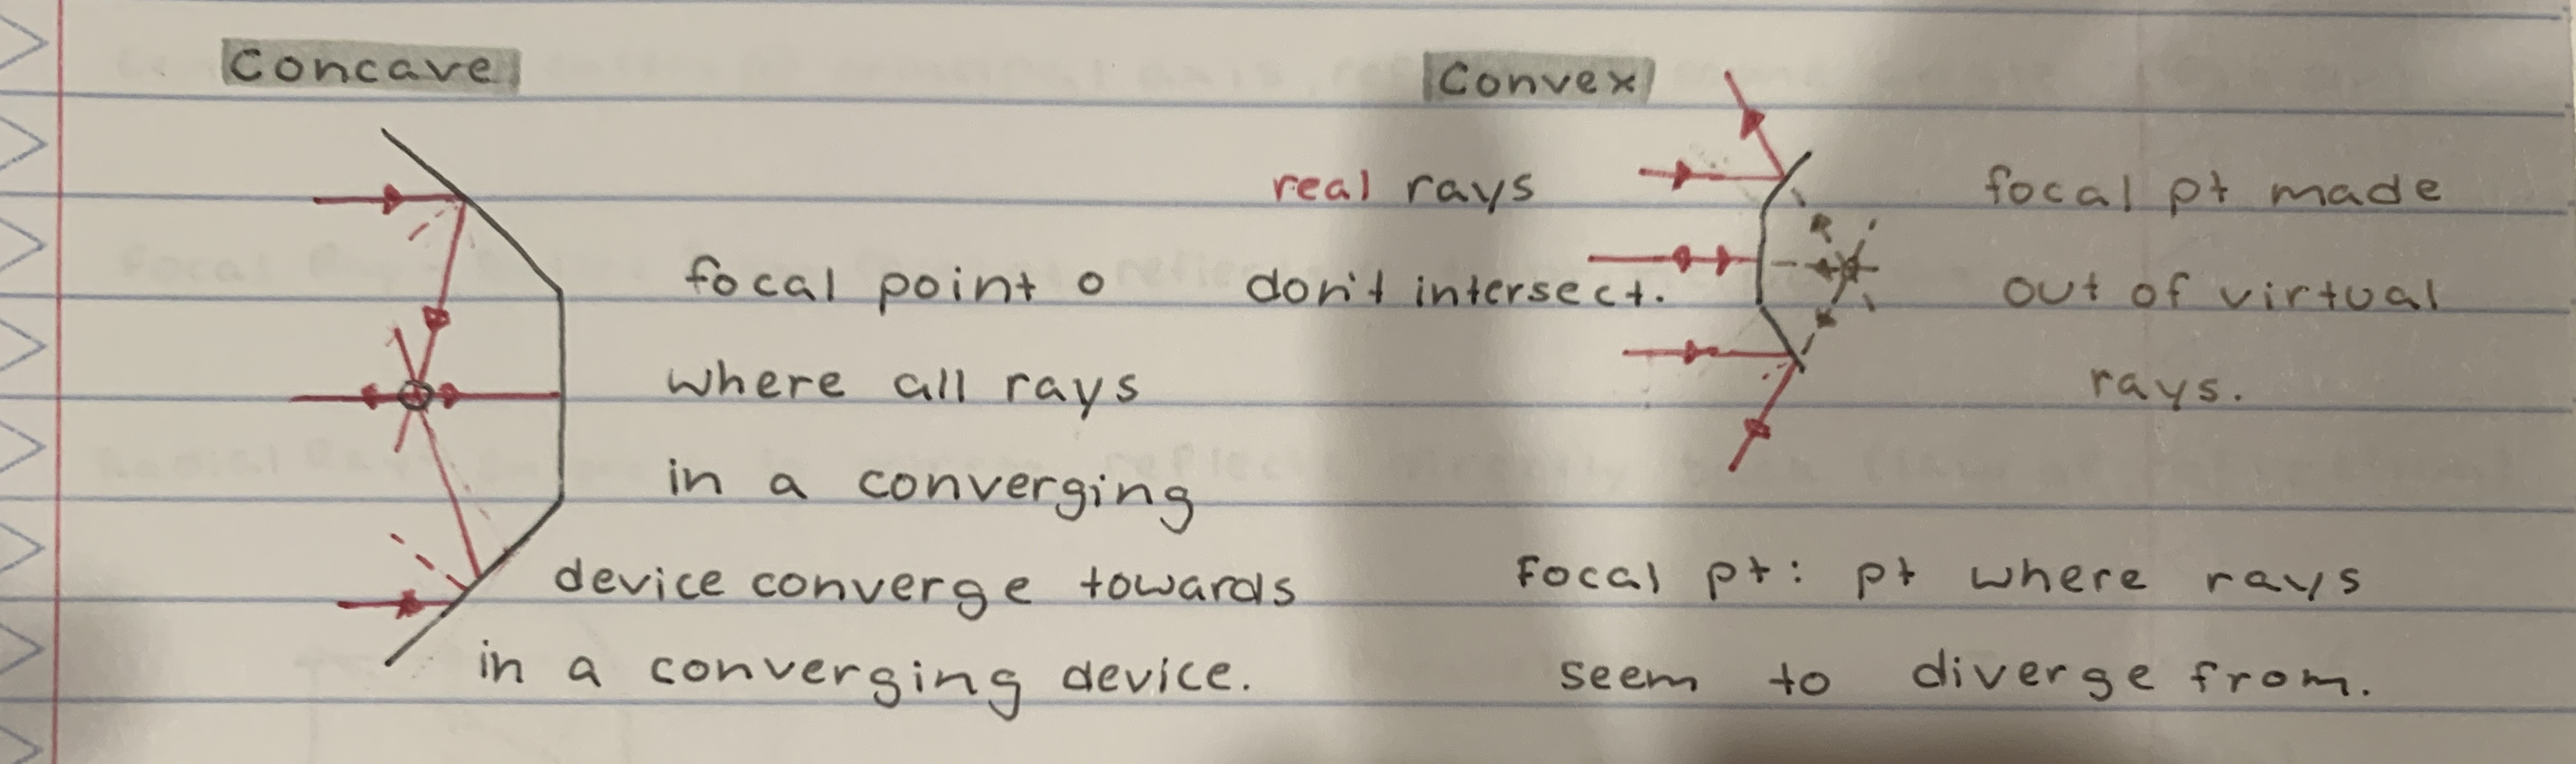 Concave
focal point o
where all rays
in a converging
device converge towards
in a converging device.
Convex
real rays
don't intersect.
focal pt made
out of virtual
rays.
Focal pt: pt where rays
seem to diverge from.